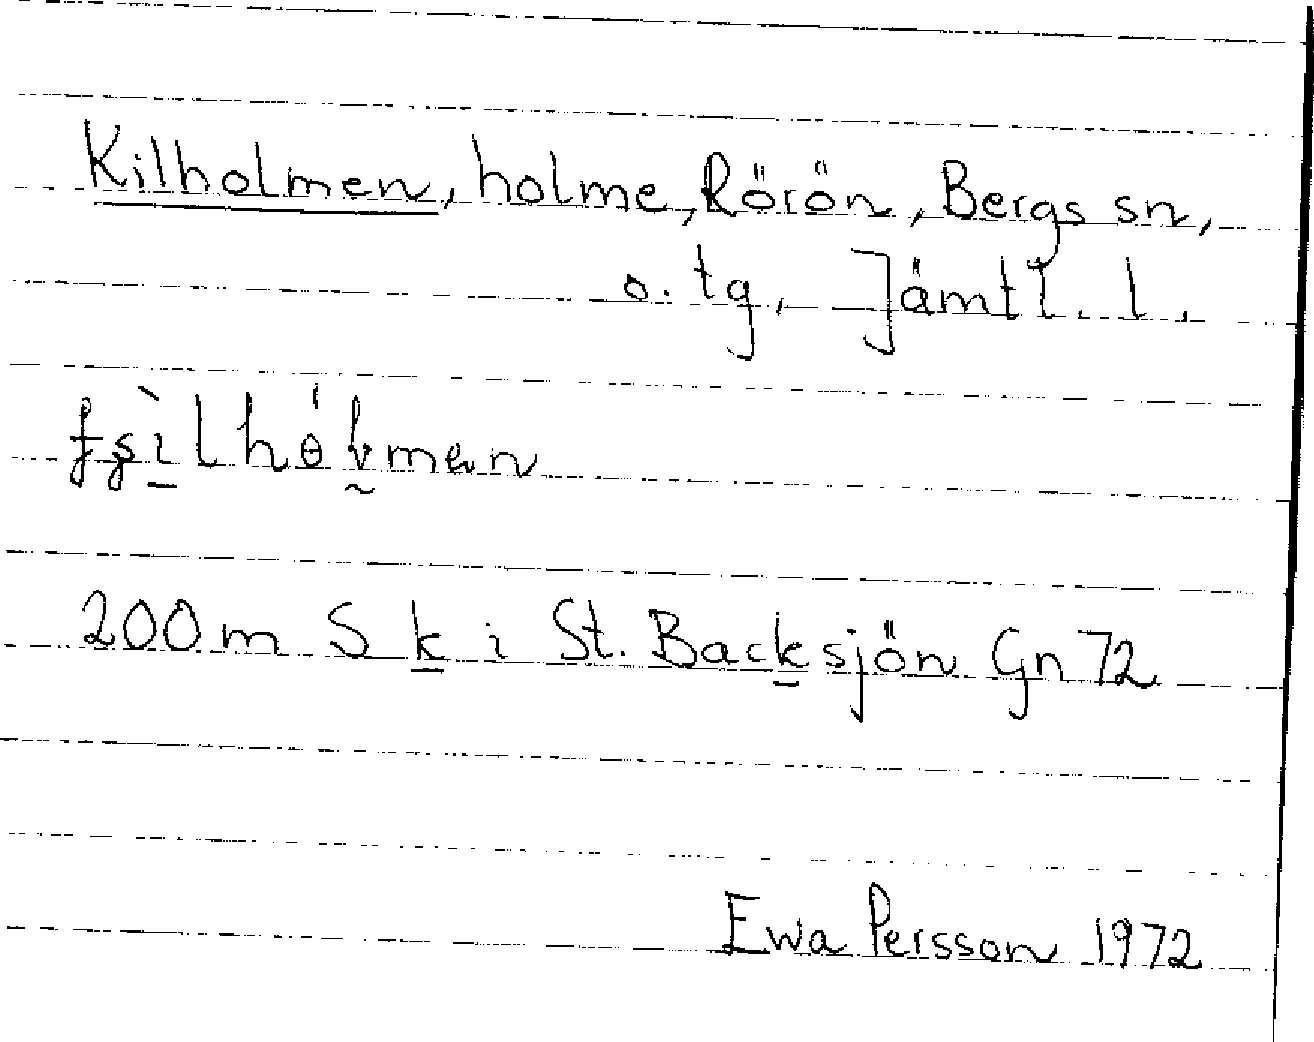 Kilholmen, holme, Rörön, Bergs sn,
o. tg, Jämtl. l.
200 m S k i St. Backsjön Gn 72
Ewa Persson 1972